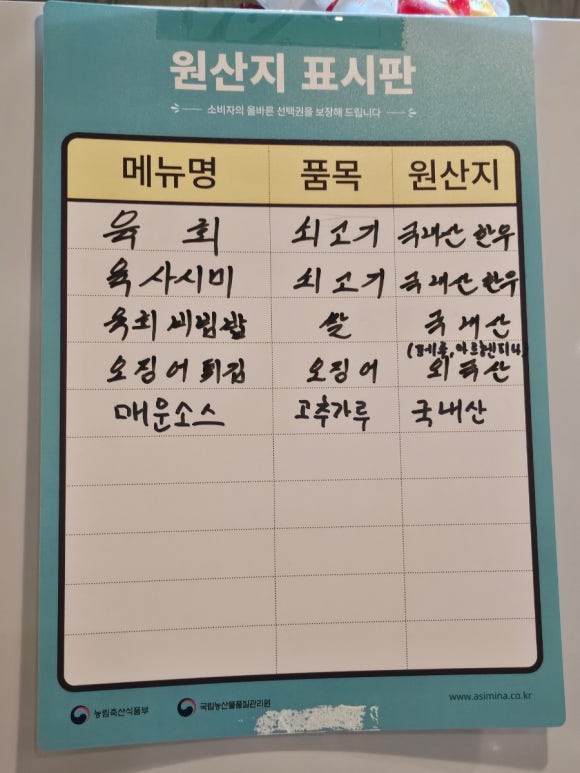 원산지 표시판
소비자의 올바른 선택권을 보장해 드립니다
메뉴명 품목 원산지
육 회 쇠고기 국내산 한우
육사시미 쇠고기 국내산 한우
육회비빔밥 쌀 국내산
(페루,아르헨티나)
오징어튀김 오징어 외국산
매운소스 고추가루 국내산
www.asimina.co.kr
농림축산식품부 국립농산물품질관리원